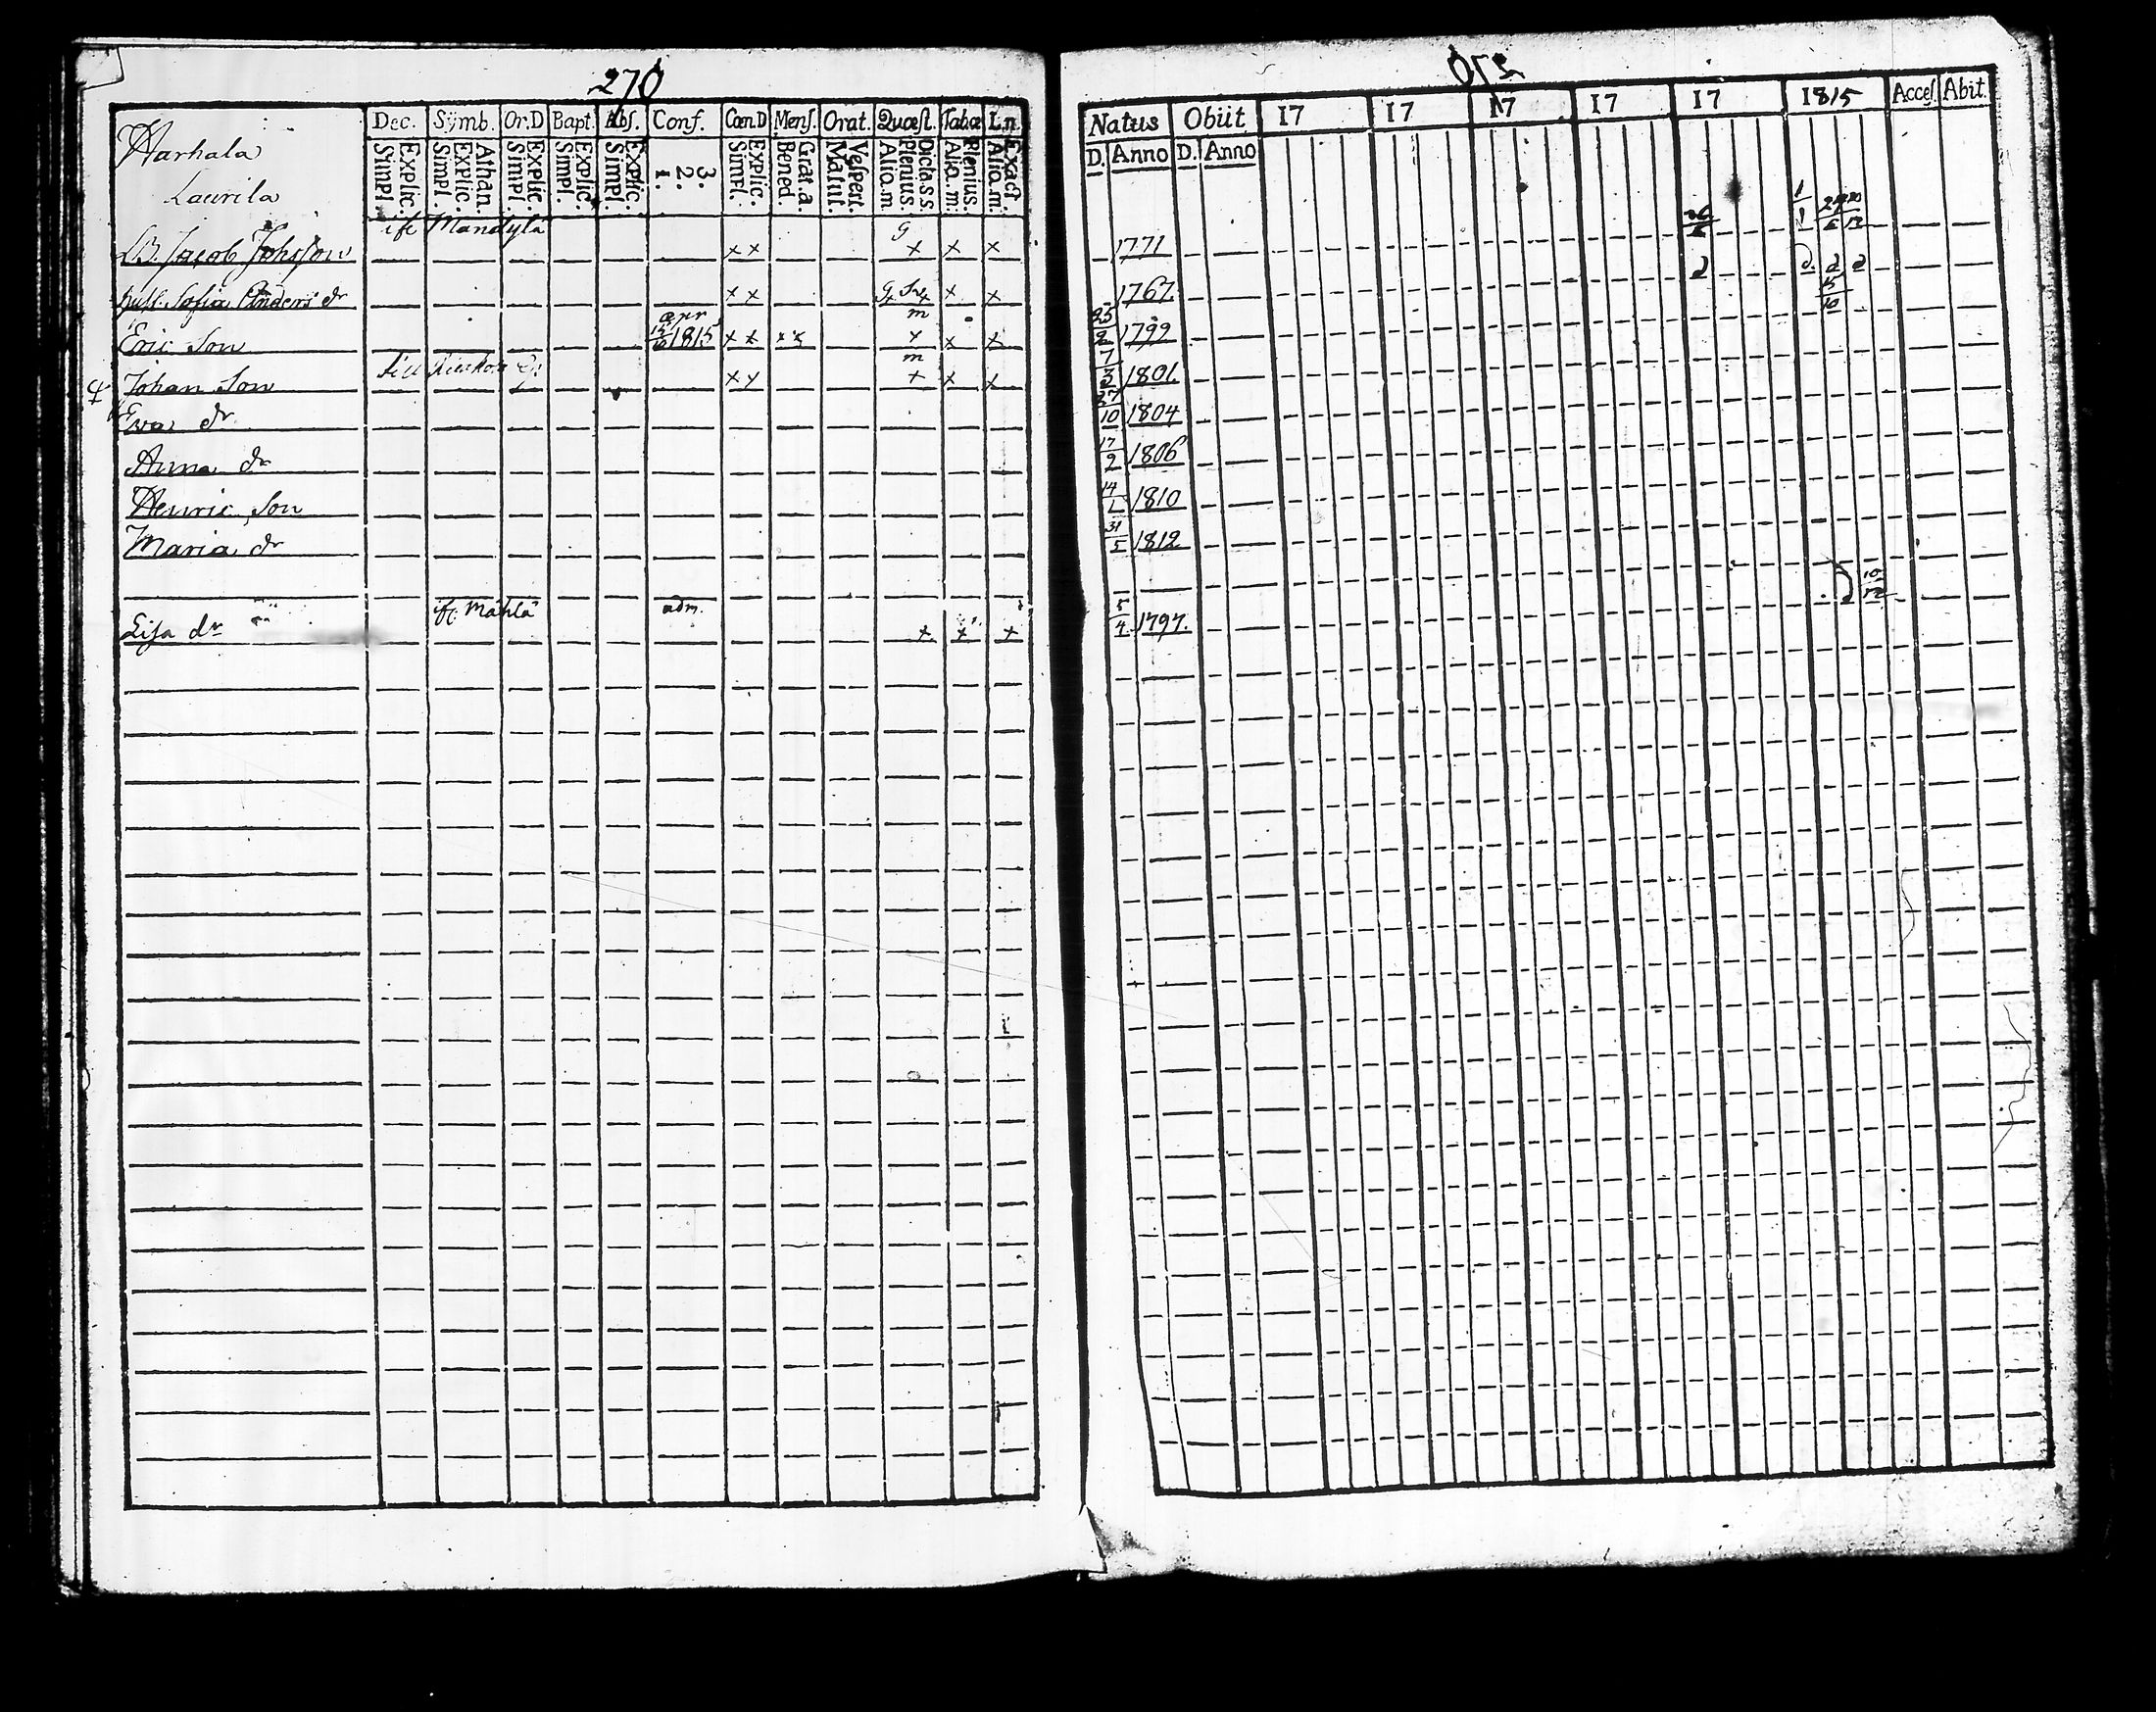 270
Dec. Symb. Or.D Bapt. Abs. Conf. Cœn.D Mens. Orat. Quæst. Tabæ L.n.
Harhala
Laurila
Simpl. Explic. Simpl. Explic. Athan. Simpl. Explic. Simpl. Explic. Simpl. Explic. 1. 2. 3. Simpl. Explic. Bened. Grat.a. Matut. Vespert. Alio.m. Plenius. Dicta.s.s. Alio.m. Plenius. Alio.m. Exact
ifr. Mandylä G
LB. Jacob Johsson x x x x x
hust. Sofia Anders dr x x x x
apr m
Eric Son 1815 x x x x x x x
till m
Johan Son x x x x x
Eva dr
Anna dr
Henric Son
Maria dr
ifr. MähLä adm.
Lisa dr x x x
270
Natus Obiit 17 17 17 17 17 1815 Acces. Abit.
D. Anno D. Anno
1771
1767
25/2 1799
7/3 1801
27/10 1804
17/2 1806
14/1 1810
31/5 1812
5/4 1797